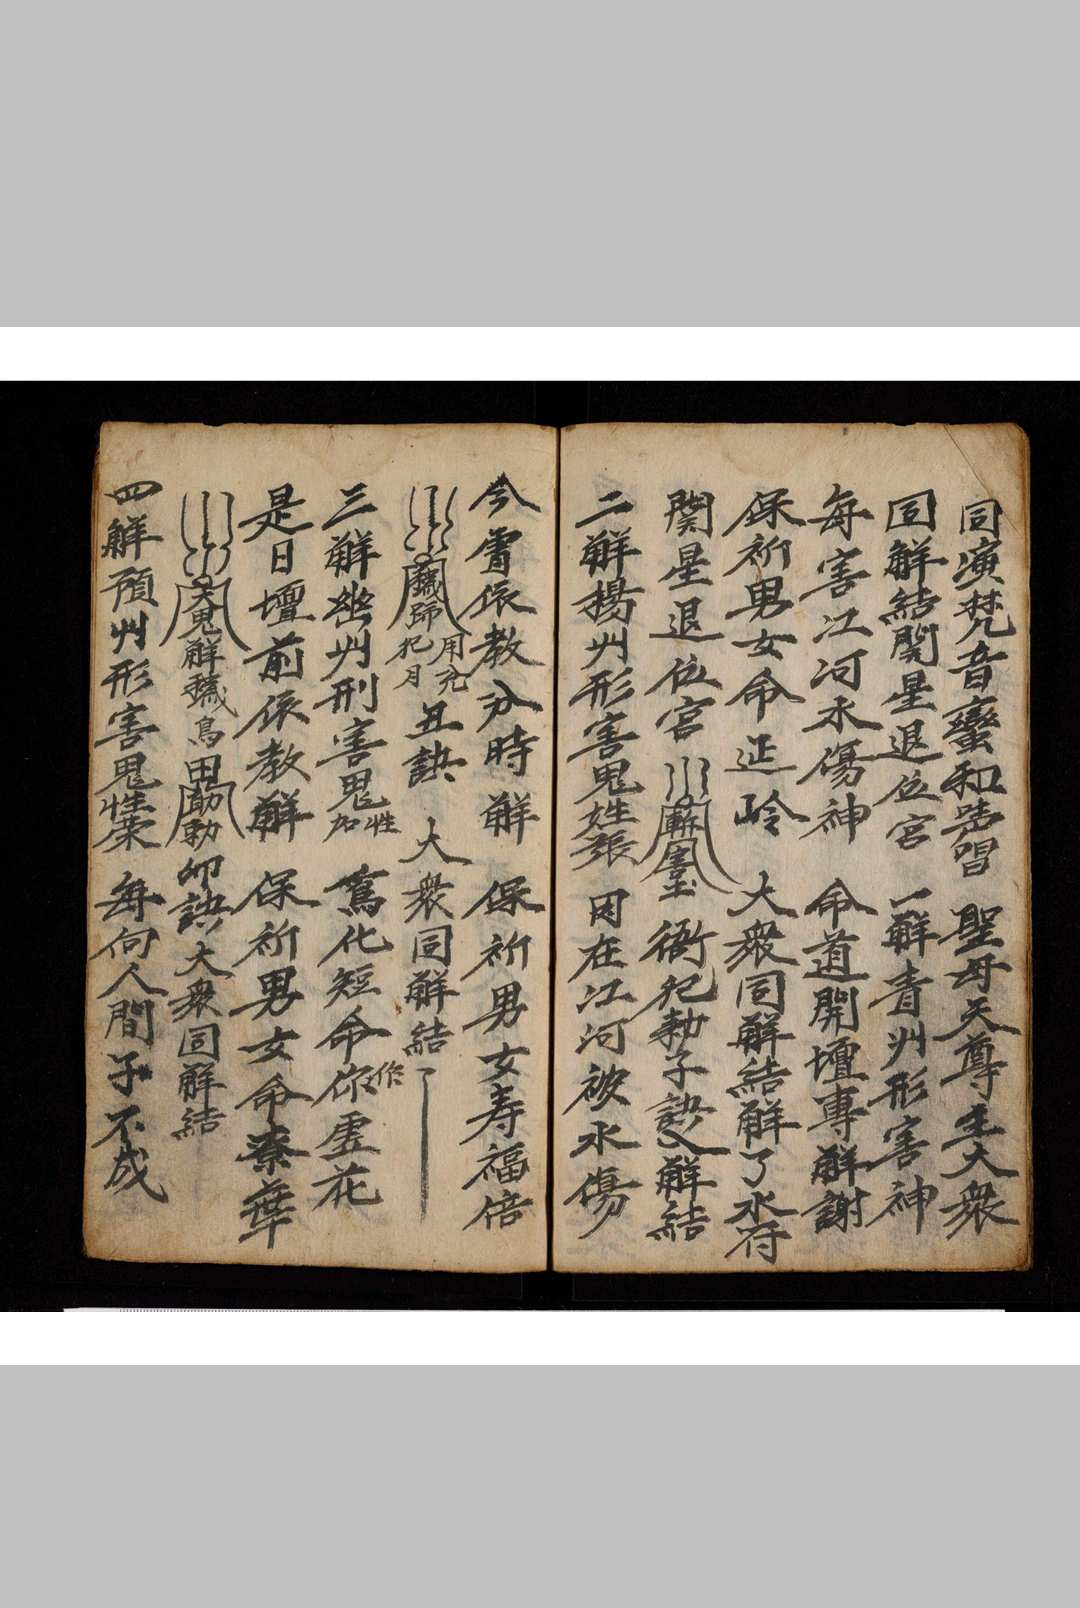 同演梵音齊和唱 聖母天尊至大衆
同解結関星退位宮 一解青州形害神
每害江河水傷神 命道開壇專解謝
保祈男女命延岭 大衆同解結解了水符
関星退位宮 衙犯勅子訣解結
二解揚州形害鬼姓張 因在江河被水傷
今霄依教分時解 保祈男女寿福倍
用充犯月丑訣 大衆同解結
三解幽州刑害鬼性加 篤化短命你作虚花
是日壇前依教解 保祈男女命寮華
鬼解 卯訣大衆同解結
四解預州形害鬼性荣 每向人間子不成